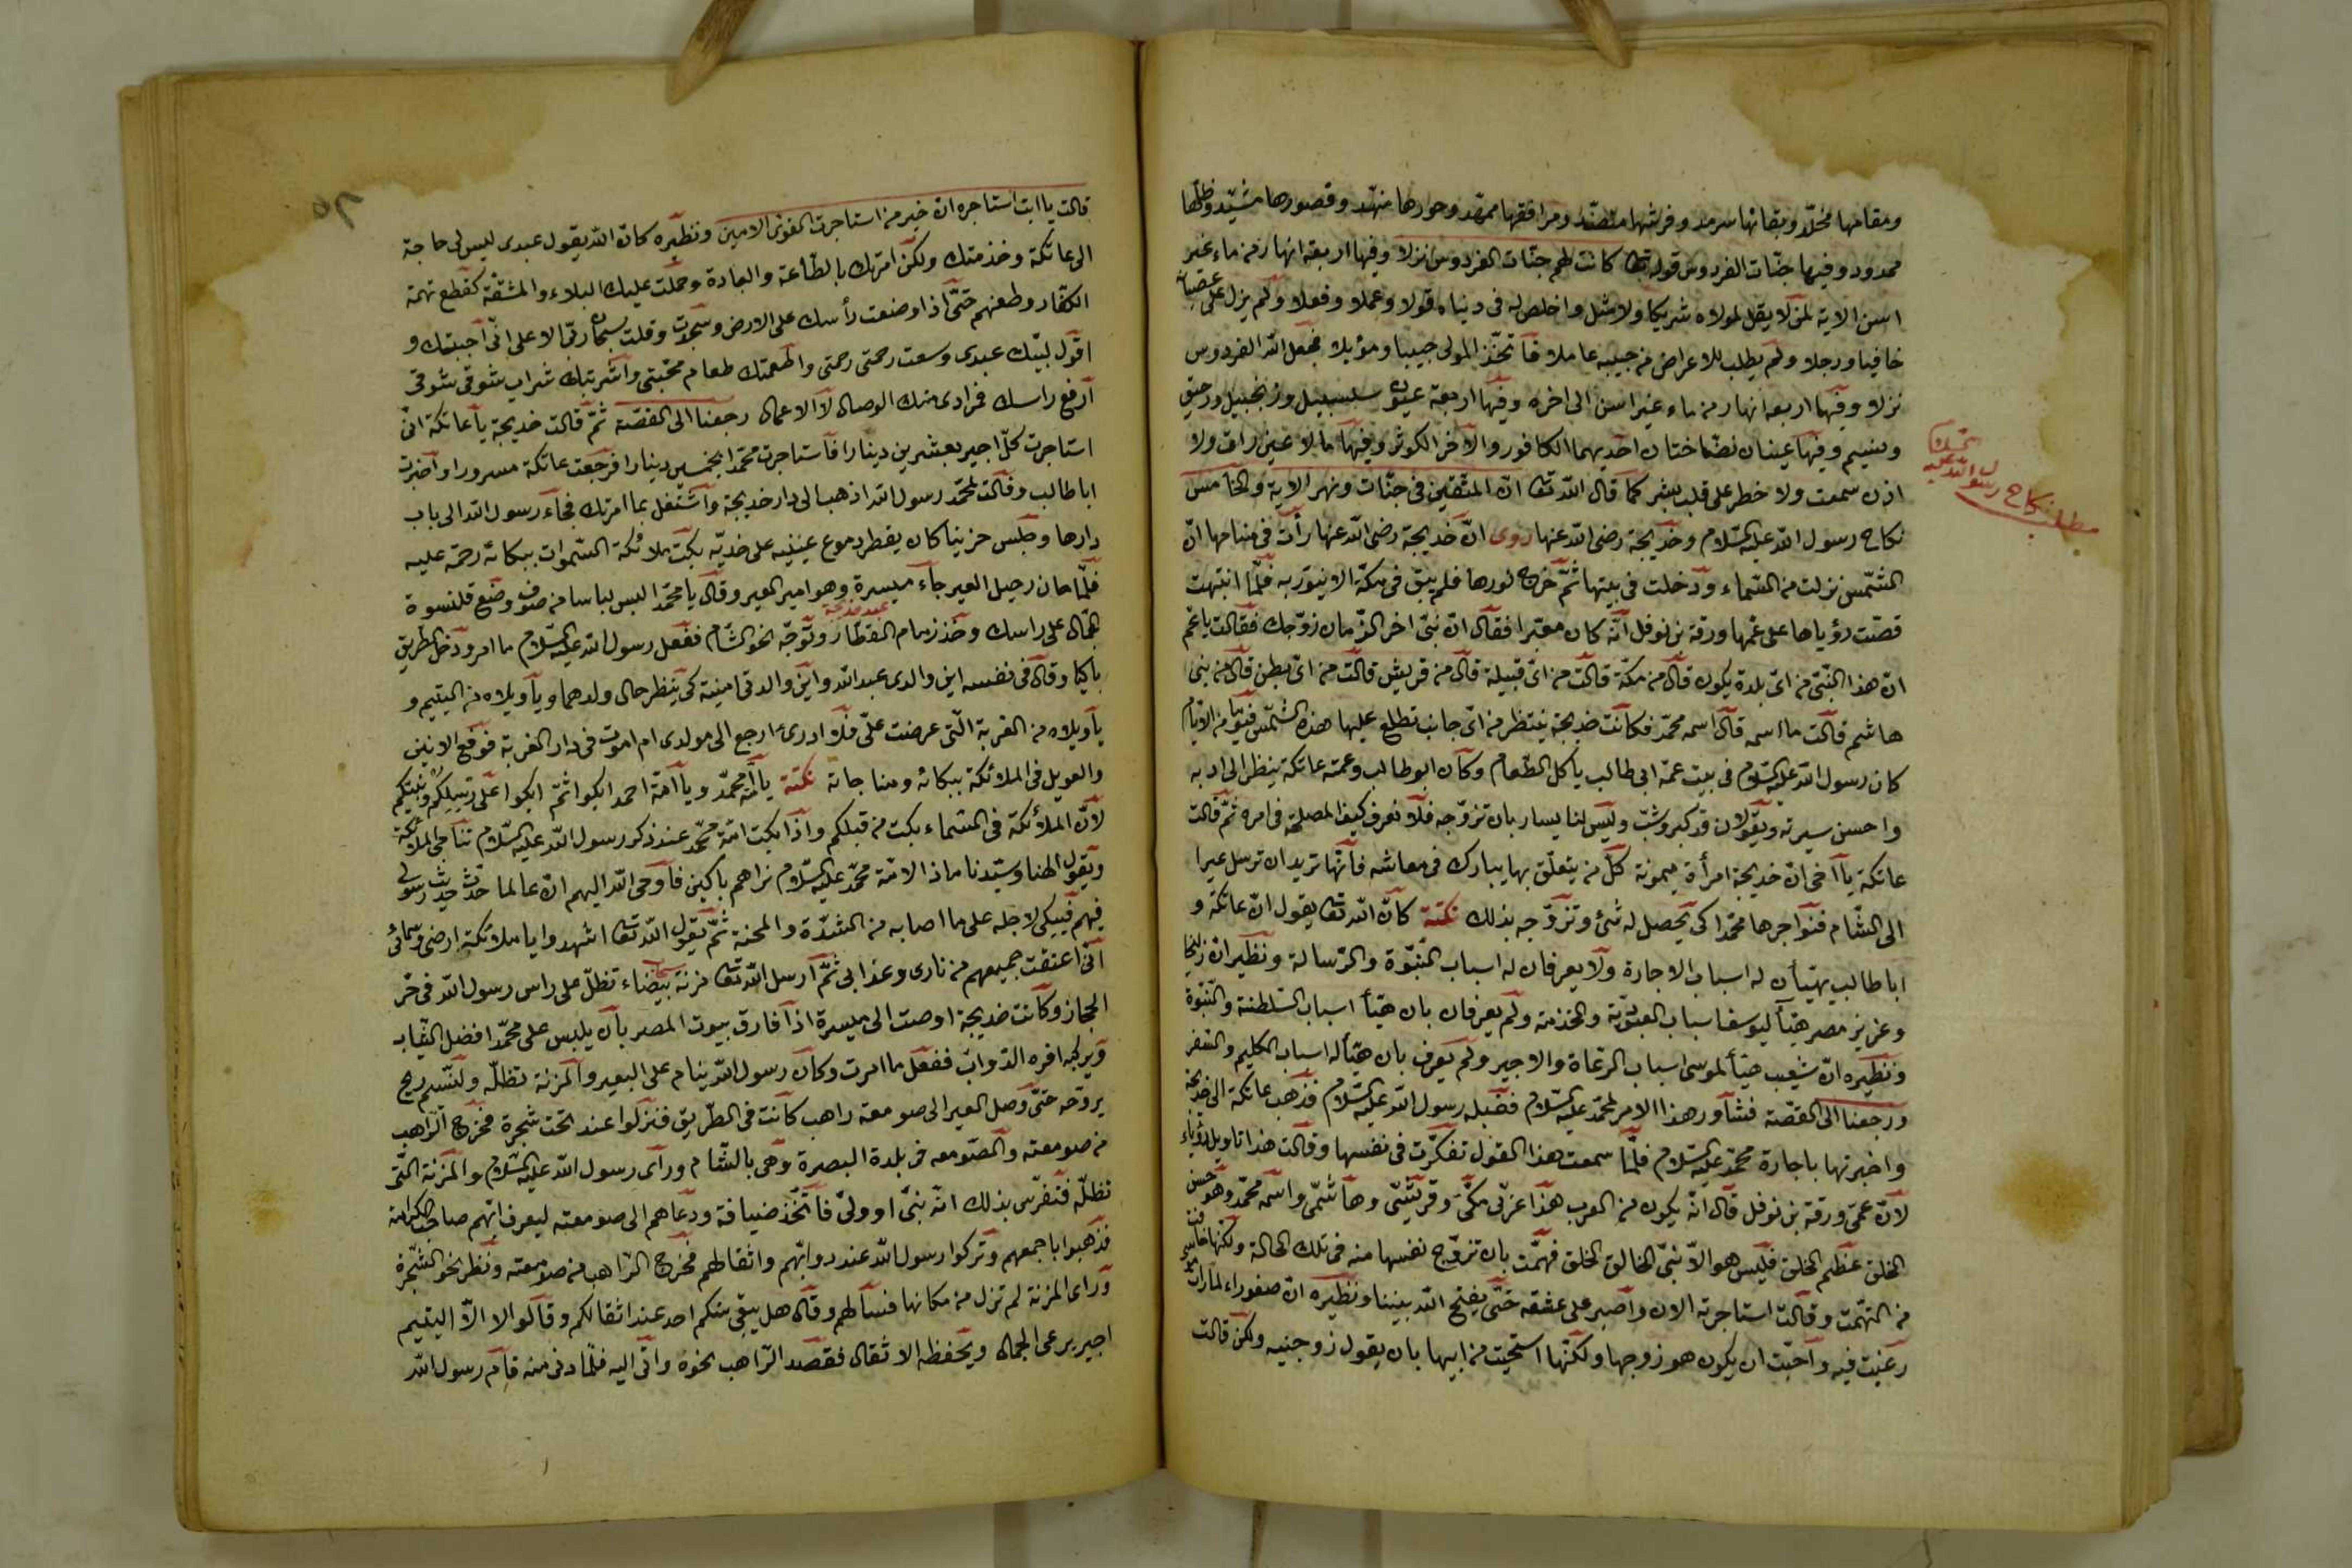 ومقامها مخلد وبقائها سرمد وفرشها منضد ومرافقها ممهد وحورها منهد وقصورها مشيد وظلها
ممدود وفيها جنات الفردوس قوله تعالى كانت لهم جنات الفردوس نزلا وفيها اربعة انهار من ماء غير
اسن الاية لمن لا يقل لمولاه شريكا ولا مثل واخلص له في دنياه قولا وعملا وفعلا ولم يزل على عتبة
خافيا ورجلا ولم يطلب للاعراض من حبيبه عاملا فاتخذ المولى حبيبا ومؤيلا فجعل الله الفردوس
نزلا وفيها اربعة انهار من ماء غير اسن الى اخره وفيها اربعة عيون سلسبيل وزنجبيل ورحيق
وتسنيم وفيها عينان نضاختان احديهما الكافور والاخر الكوثر وفيها ما لا عين رات ولا
اذن سمعت ولا خطر على قلب بشر كما قال الله تعالى ان المتقين في جنات ونهر الاية والخامس
نكاح رسول الله عليه السلام وخديجة رضى الله عنها روى ان خديجة رضى الله عنها رأت في منامها ان
الشمس نزلت من السماء ودخلت في بيتها ثم خرج نورها فلم يبق في مكة الا ينور به فلما انتبهت
قصت رؤياها على عمها ورقة بن نوفل انه كان معبرا فقال ان نبي اخر الزمان زوجك فقالت يا عم
ان هذا النبي من اى بلدة يكون قال من مكة قالت من اى قبيلة قال من قريش قالت من اى بطن قال من بنى
هاشم قالت ما اسمه قال اسمه محمد فكانت خديجة ينتظر من اى جانب تطلع عليها هذه الشمس فيوما من الايام
كان رسول الله عليه السلام في بيت عمه ابى طالب ياكل الطعام وكان ابو طالب وعمته عاتكة ينظر الى ادبه
واحسن سيرته ويقولان قد كبر وشب وليس لنا يسار بان تزوجه فلا نعرف كيف المصلحة في امره ثم قالت
عاتكة يا اخى ان خديجة امرأة ميمونة كل من يتعلق بها يبارك في معاشه فانها تريد ان ترسل عيرا
الى الشام فنواجرها محمدا كى يحصل له شئ وتزوجه بذلك نكتة كان الله تعالى يقول ان عاتكة و
ابا طالب يهيئان له اسباب الاجارة ولا يعرفان له اسباب النبوة والرسالة ونظيره ان زليخا
وعزيز مصر هيئا ليوسف اسباب العبودية والخدمة ولم يعرفان بان هيئا اسباب السلطنة والنبوة
ونظيره ان شعيب هيئا لموسى اسباب الرعاة والاجير ولم يعرف بان هيئا له اسباب الكليم والسفر
ورجعنا الى القصة فشاور هذا الامر لمحمد عليه السلام فقبله رسول الله عليه السلام فذهب عاتكة الى خديجة
واخبرتها باجارة محمد عليه السلام فلما سمعت هذا القول تفكرت في نفسها وقالت هذا تاويل رؤياء
لان عمى ورقة بن نوفل قال انه يكون من العرب هذا عربى مكى وقريشى وهاشمى واسمه محمد وهو حسن
الخلق عظيم الخلق فليس هو الا نبي الخالق الخلق فهمت بان تزوج نفسها منه في تلك الحالة ولكنها خافت
من التهمت وقالت استاجرته الان واصبر على عشقه حتى يفتح الله بيننا ونظيره ان صفوراء لما رات
رغبت فيه واحبت ان يكون هو زوجها ولكنها استحيت من ابيها بان يقول زوجنيه ولكن قالت
مطلب نكاح رسول الله عليه السلام
قالت يا ابت استاجره ان خير من استاجرت القوى الامين ونظيره كان الله يقول عبدى ليس لى حاجة
الى عاتكة وخدمتك ولكن امرتك بالطاعة والعبادة وحملت عليك البلاء والمشقة كقطع تهمة
الكفار وطعنهم حتى اذا وضعت رأسك على الارض وسجدت وقلت سبحان ربى الاعلى انى اجبتك و
اقول لبيك عبدى وسعت رحمتى رحمتى واطعمتك طعام محبتى واشربتك شراب شوقى شوقى
ارفع راسك فمرادى منك الوصال لا الاعمال رجعنا الى القصة ثم قالت خديجة يا عاتكة انى
استاجرت كل اجير بعشرين دينارا فاستاجرت محمدا بخمسين دينارا فرجعت عاتكة مسرورا واخبرت
ابا طالب وقالت لمحمد رسول الله اذهب الى دار خديجة واشتغل بما امرتك فجاء رسول الله الى باب
دارها وجلس حزينا كان يقطر دموع عينيه على خديه بكت ملائكة السموات ببكائه رحمة عليه
فلما حان رحيل العير جاء ميسرة وهو امير العير وقال يا محمد البس لباسا من صوف وضع قلنسوة
عبد خديجة
الجمال على راسك وخذ زمام القطار وتوجه نحو الشام ففعل رسول الله عليه السلام ما امر ودخل الطريق
باكيا وقال في نفسه اين والدى عبد الله واين والدتى امينة كى ينظر حال ولدهما ويا ويلاه من اليتيم و
يا ويلاه من الغربة التى عرضت على فلا ادرى ارجع الى مولدى ام اموت في دار الغربة فوقع الانين
والعويل في الملائكة ببكائه ومناجاته نكتة يا امة محمد ويا امة احمد ابكوا ثم ابكوا على رسولكم ونبيكم
لان الملائكة في السماء بكت من قبلكم واذا بكت امة محمد عند ذكر رسول الله عليه السلام تناجى الملائكة
ويقول الهنا وسيدنا ماذا الامة محمد عليه السلام نراهم باكين فاوحى الله اليهم ان عالما حدث حديث رسولى
فيهم فيبكى لاجله على ما اصابه من الشدة والمحنة ثم يقول الله تعالى اشهدوا يا ملائكة ارضى وسمائى
انى اعتقت جميعهم من نارى وعذابى ثم ارسل الله تعالى مزنة بيضاء تظل على راس رسول الله في حر
سحاب
الحجاز وكانت خديجة اوصت الى ميسرة اذا فارق بيوت المصر بان يلبس على محمد افضل الثيابه
ويركبه افره الدواب ففعل ما امرت وكان رسول الله ينام على البعير والمزنة تظله ولنسم ريح
يروحه حتى وصل العير الى صومعة راهب كانت في الطريق فنزلوا عند تحت شجرة فخرج الراهب
من صومعته والصومعه في بلدة البصرة وهى بالشام وراى رسول الله عليه السلام والمزنة التى
تظله فتفرس بذلك انه نبى او ولى فاتخذ ضيافة ودعاهم الى صومعته ليعرف ايهم صاحب الكرامة
فذهبوا باجمعهم وتركوا رسول الله عند دوابهم واثقالهم فخرج الراهب من صومعته ونظر نحو الشجرة
وراى المزنة لم تزل من مكانها فسالهم وقال هل يبقى منكم احد عند اثقالكم وقالوا لا الا اليتيم
اجير يرعى الجمال ويحفظه الاثقال فقصد الراهب نحوه واتى اليه فلما دنى منه قام رسول الله